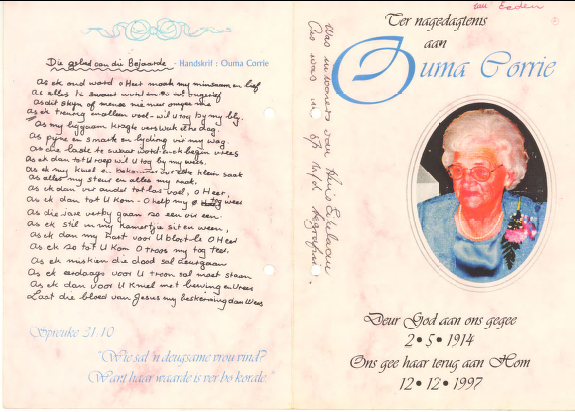 Die gebed van die Bejaarde - Handskrif : Ouma Corrie
As ek oud word o Heer maak my minsaam en lief
As alles te swaar word en
As dit skyn of mense nie meer omgee nie
As ek treurig en alleen voel - wil U tog by my bly.
As my liggaam kragte verswak elke dag.
As pyne en smarte en lyding vir my wag.
As die laste te swaar word en ek begin vrees
As ek dan tot U roep wil U tog by my wees.
As ek my kniel en
As alles my steur en alles my raak.
As ek dan ver van af tot las voel, o Heer,
As ek dan tot U kom - O help my tog wees
As die jare verby gaan so een vir een.
As ek stil in my kamertjie sit en ween,
As ek dan my hart voor U blootlê O Heer
As ek so tot U kom O troos my tog teer.
As ek miskien die dood sal deurgaan
As ek eendags voor U troon sal moet staan
As ek dan voor U kniel met bewing en vrees
Laat die bloed van Jesus my beskerming dan wees
Spreuke 31:10
"Wie sal 'n deugsame vrou vind?
Want haar waarde is ver bo korale."
van Eeden
Ter nagedagtenis
aan
Ouma Corrie
Was inwoner van Huis
Sy was
Deur God aan ons gegee
2 • 5 • 1914
Ons gee haar terug aan Hom
12 • 12 • 1997